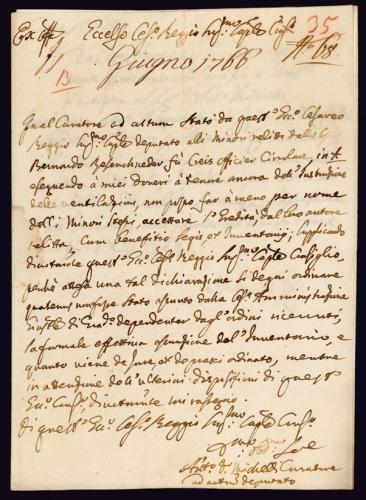 35
Eccelso Ces.º Reggio Sup.mo Cap.le Cons.º
Giugno 1766
13
Qual Curatore ad actum stato da quest' Ecc.º Cesareo
Reggio Sup.mo Cap.le deputato alli Minori relitti dallo
Bernardo fù Creis Officier Circolare, in
esequendo à miei doveri à tenore ancora dell' Instruzione
delle ventilazioni, non posso far à meno per nome
delli Minori stessi, accettare l'Eredità dal loro autore
relitta, Cum beneficio legis et Inventarij, Supplicando
quest' Ecc.º Ces.º Reggio Sup.mo Cap.le Consiglio,
perchè attesa una tal dichiarazione si degni ordinare
quatenus non fosse stato assunto dalla Ces.ª Amministrazione
dependenter dagl' ordini ricevuti,
la formale effettiva assunzione dell' Inventario, e
quanto viene de jure et de praxi ordinato, mentre
in attenzione dell' ulteriori disposizioni di quest'
Ecc.º Cons.º, mi rassegno.
di quest' Ecc.º Ces.º Reggio Sup.mo Cap.le Cons.º
Ant.º de Michelli Curatore
ad actum deputato